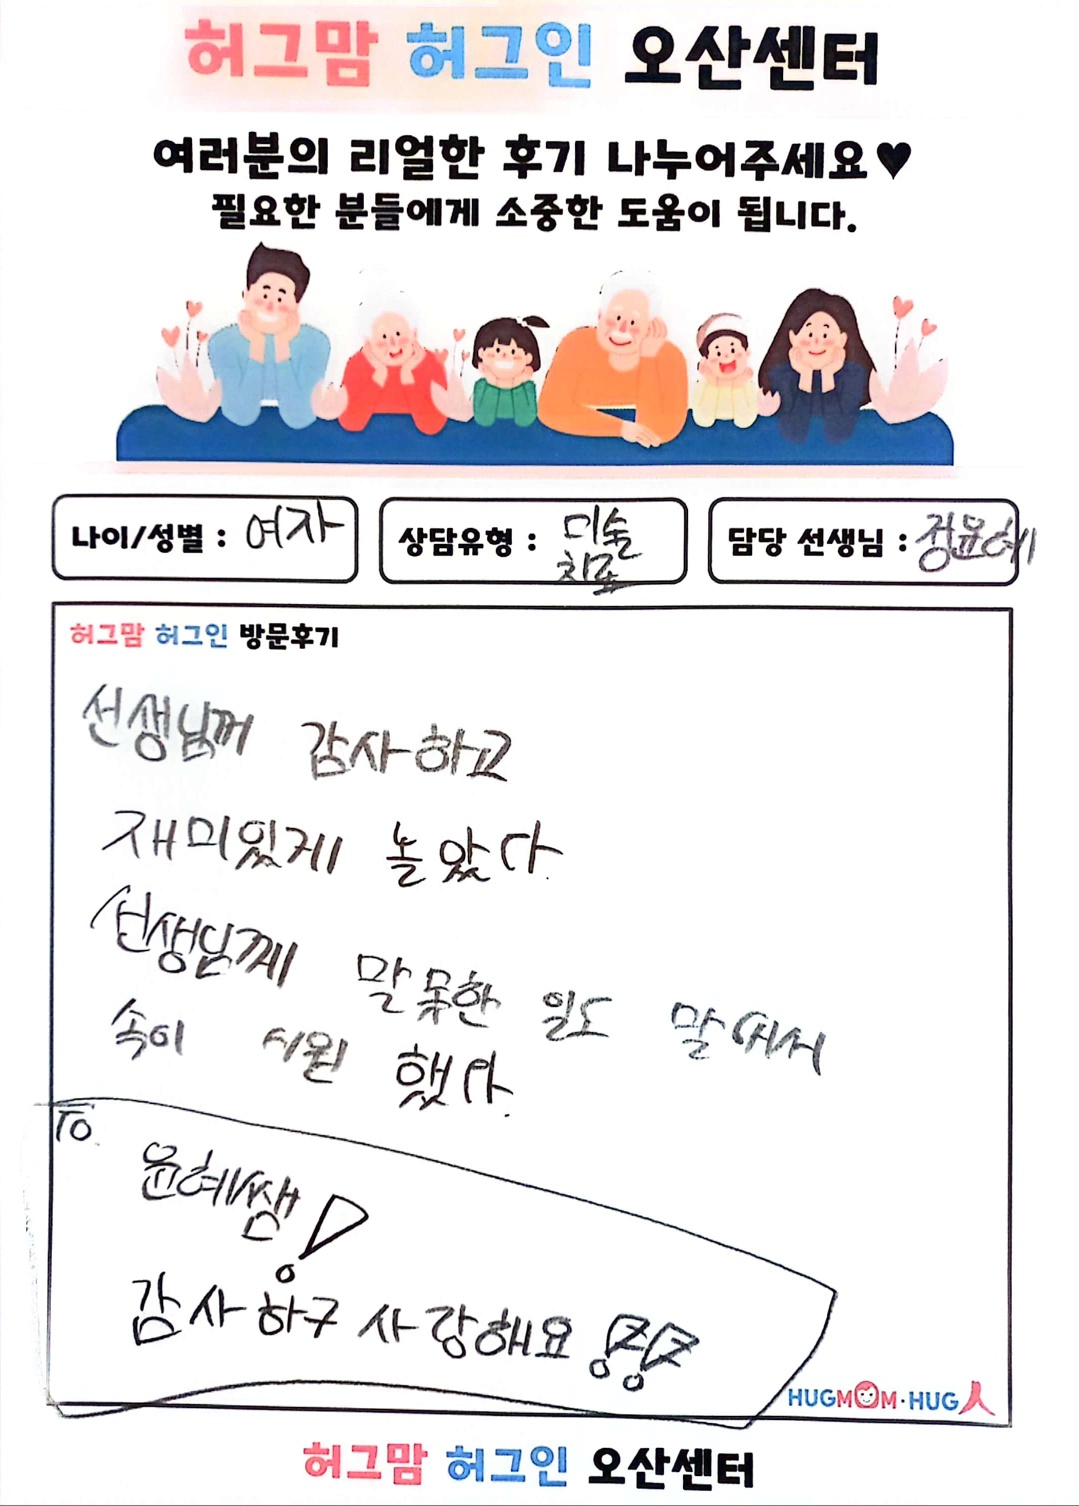 허그맘 허그인 오산센터
여러분의 리얼한 후기 나누어주세요♥
필요한 분들에게 소중한 도움이 됩니다.
나이/성별 : 여자
상담유형 : 미술
치료
담당 선생님 : 정윤혜
허그맘 허그인 방문후기
선생님꺼 감사하고
재미있게 놀았다.
선생님께 말못한 일도 말해서
속이 시원 했다.
To.
윤혜쌤!
감사하구 사랑해요!!
HUGMOM·HUG人
허그맘 허그인 오산센터